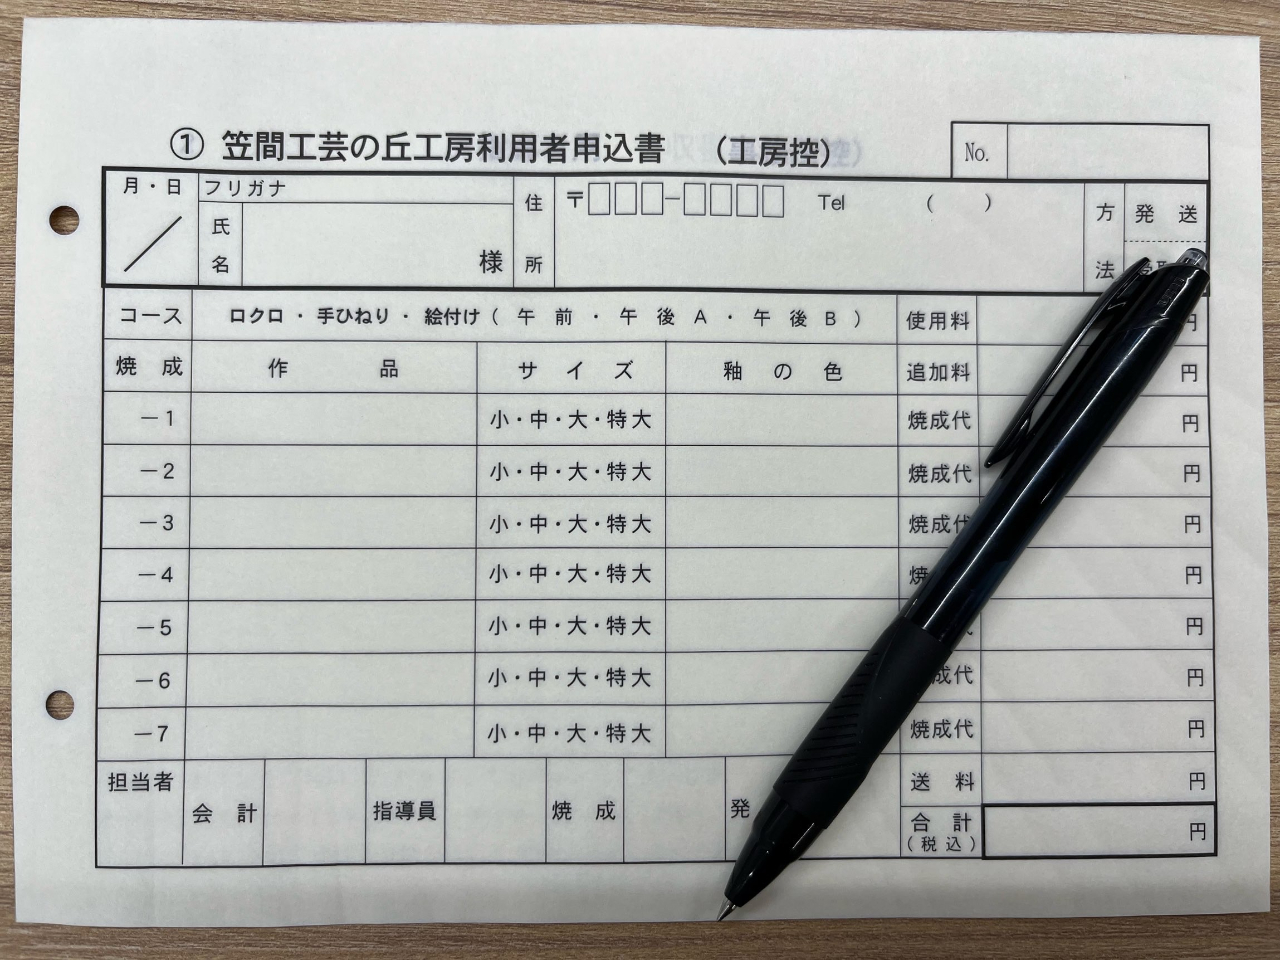 ① 笠間工芸の丘工房利用者申込書 （工房控） No.
月・日 フリガナ 住所 〒□□□－□□□□ Tel （ ） 方法 発 送
／ 氏名 様
コース ロクロ ・ 手ひねり ・ 絵付け（ 午 前 ・ 午 後 A ・ 午 後 B ） 使用料 円
焼 成 作 品 サ イ ズ 釉 の 色 追加料 円
－1 小・中・大・特大 焼成代 円
－2 小・中・大・特大 焼成代 円
－3 小・中・大・特大 焼成代 円
－4 小・中・大・特大 焼 円
－5 小・中・大・特大 円
－6 小・中・大・特大 成代 円
－7 小・中・大・特大 焼成代 円
担当者 会 計 指導員 焼 成 発 送 料 円
合 計 （税 込） 円